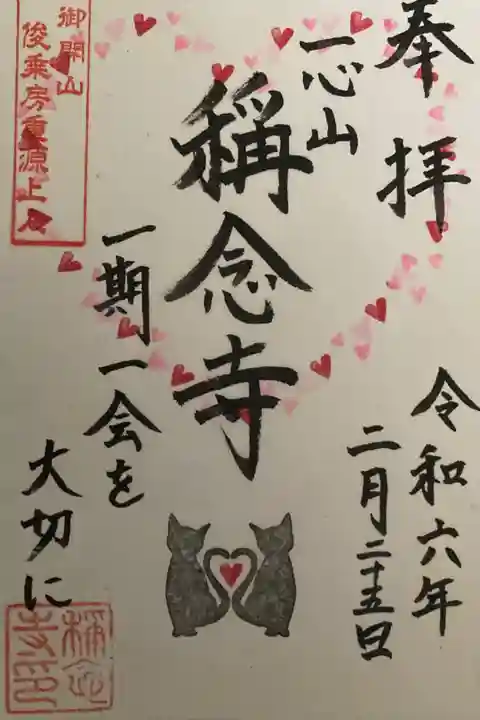 奉拝
令和六年
二月二十五日
一心山
稱念寺
一期一会を
大切に
御開山
俊乗房重源上人
稱念
寺印